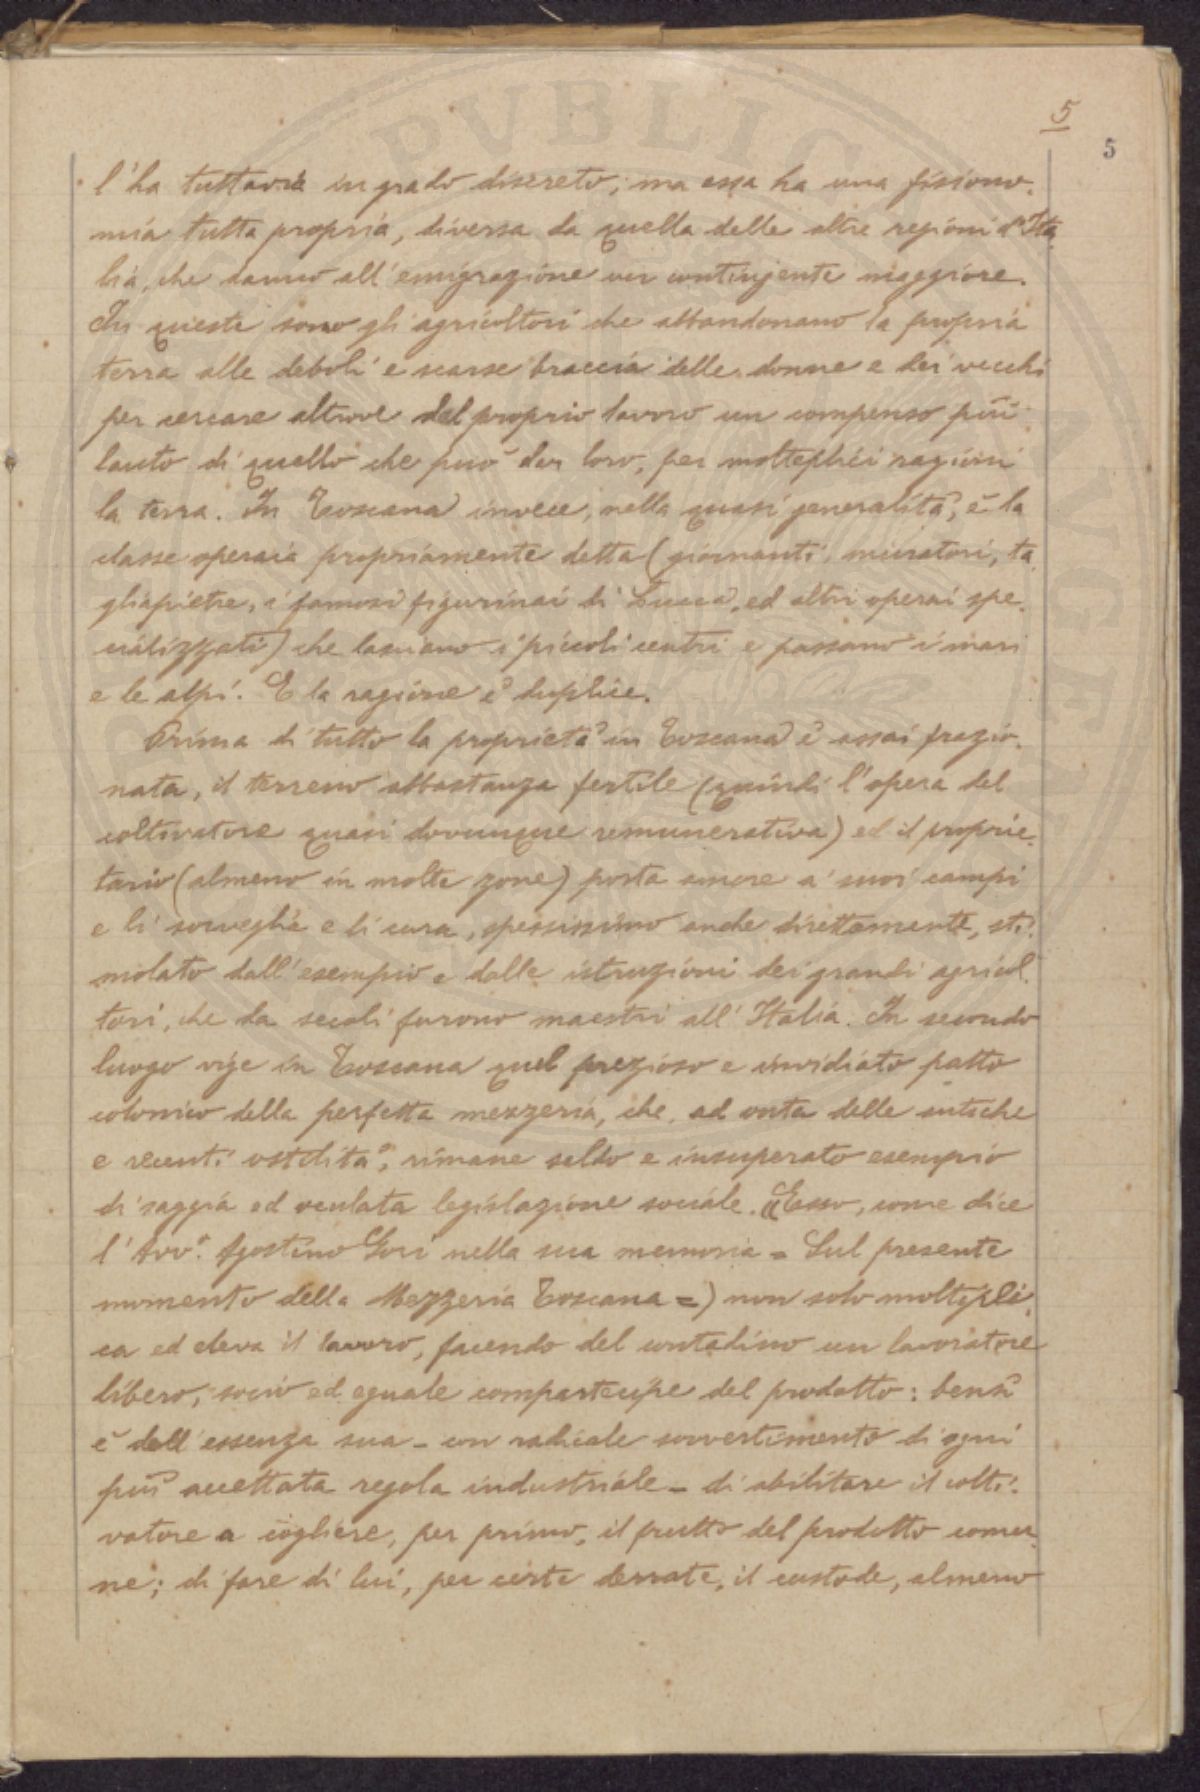 5
5
l'ha tuttavia in grado discreto; ma essa ha una fisiono-
mia tutta propria, diversa da quella delle altre regioni d'Ita-
lia, che danno all'emigrazione un contingente maggiore.
In queste sono gli agricoltori che abbandonano la propria
terra alle deboli e scarse braccia delle donne e dei vecchi
per cercare altrove del proprio lavoro un compenso più
lauto di quello che può dar loro, per molteplici ragioni
la terra. In Toscana invece, nella quasi generalità, è la
classe operaia propriamente detta (giornanti, muratori, ta-
gliapietre, i famosi figurinai di Lucca, ed altri operai spe-
cializzati) che lasciano i piccoli centri e passano i mari
e le alpi. E la ragione è duplice.
Prima di tutto la proprietà in Toscana è assai frazio-
nata, il terreno abbastanza fertile (quindi l'opera del
coltivatore quasi dovunque remunerativa) ed il proprie-
tario (almeno in molte zone) porta amore a' suoi campi
e li sorveglia e li cura, spessissimo anche direttamente, sti-
molato dall'esempio e dalle istruzioni dei grandi agricol-
tori, che da secoli furono maestri all'Italia. In secondo
luogo vige in Toscana quel prezioso e invidiato patto
colonico della perfetta mezzeria, che, ad onta delle antiche
e recenti ostilità, rimane saldo e insuperato esempio
di saggia ed oculata legislazione sociale. ((Esso, come dice
l'Avv.o Agostino Gori nella sua memoria = Sul presente
momento della Mezzeria Toscana =) non solo moltipli-
ca ed eleva il lavoro, facendo del contadino un lavoratore
libero, socio ed eguale compartecipe del prodotto: bensì
è dell'essenza sua - con radicale sovvertimento di ogni
più accettata regola industriale - di abilitare il colti-
vatore a cogliere, per primo, il frutto del prodotto comu-
ne; di fare di lui, per certe derrate, il custode, almeno
PVBLICA
AVGE